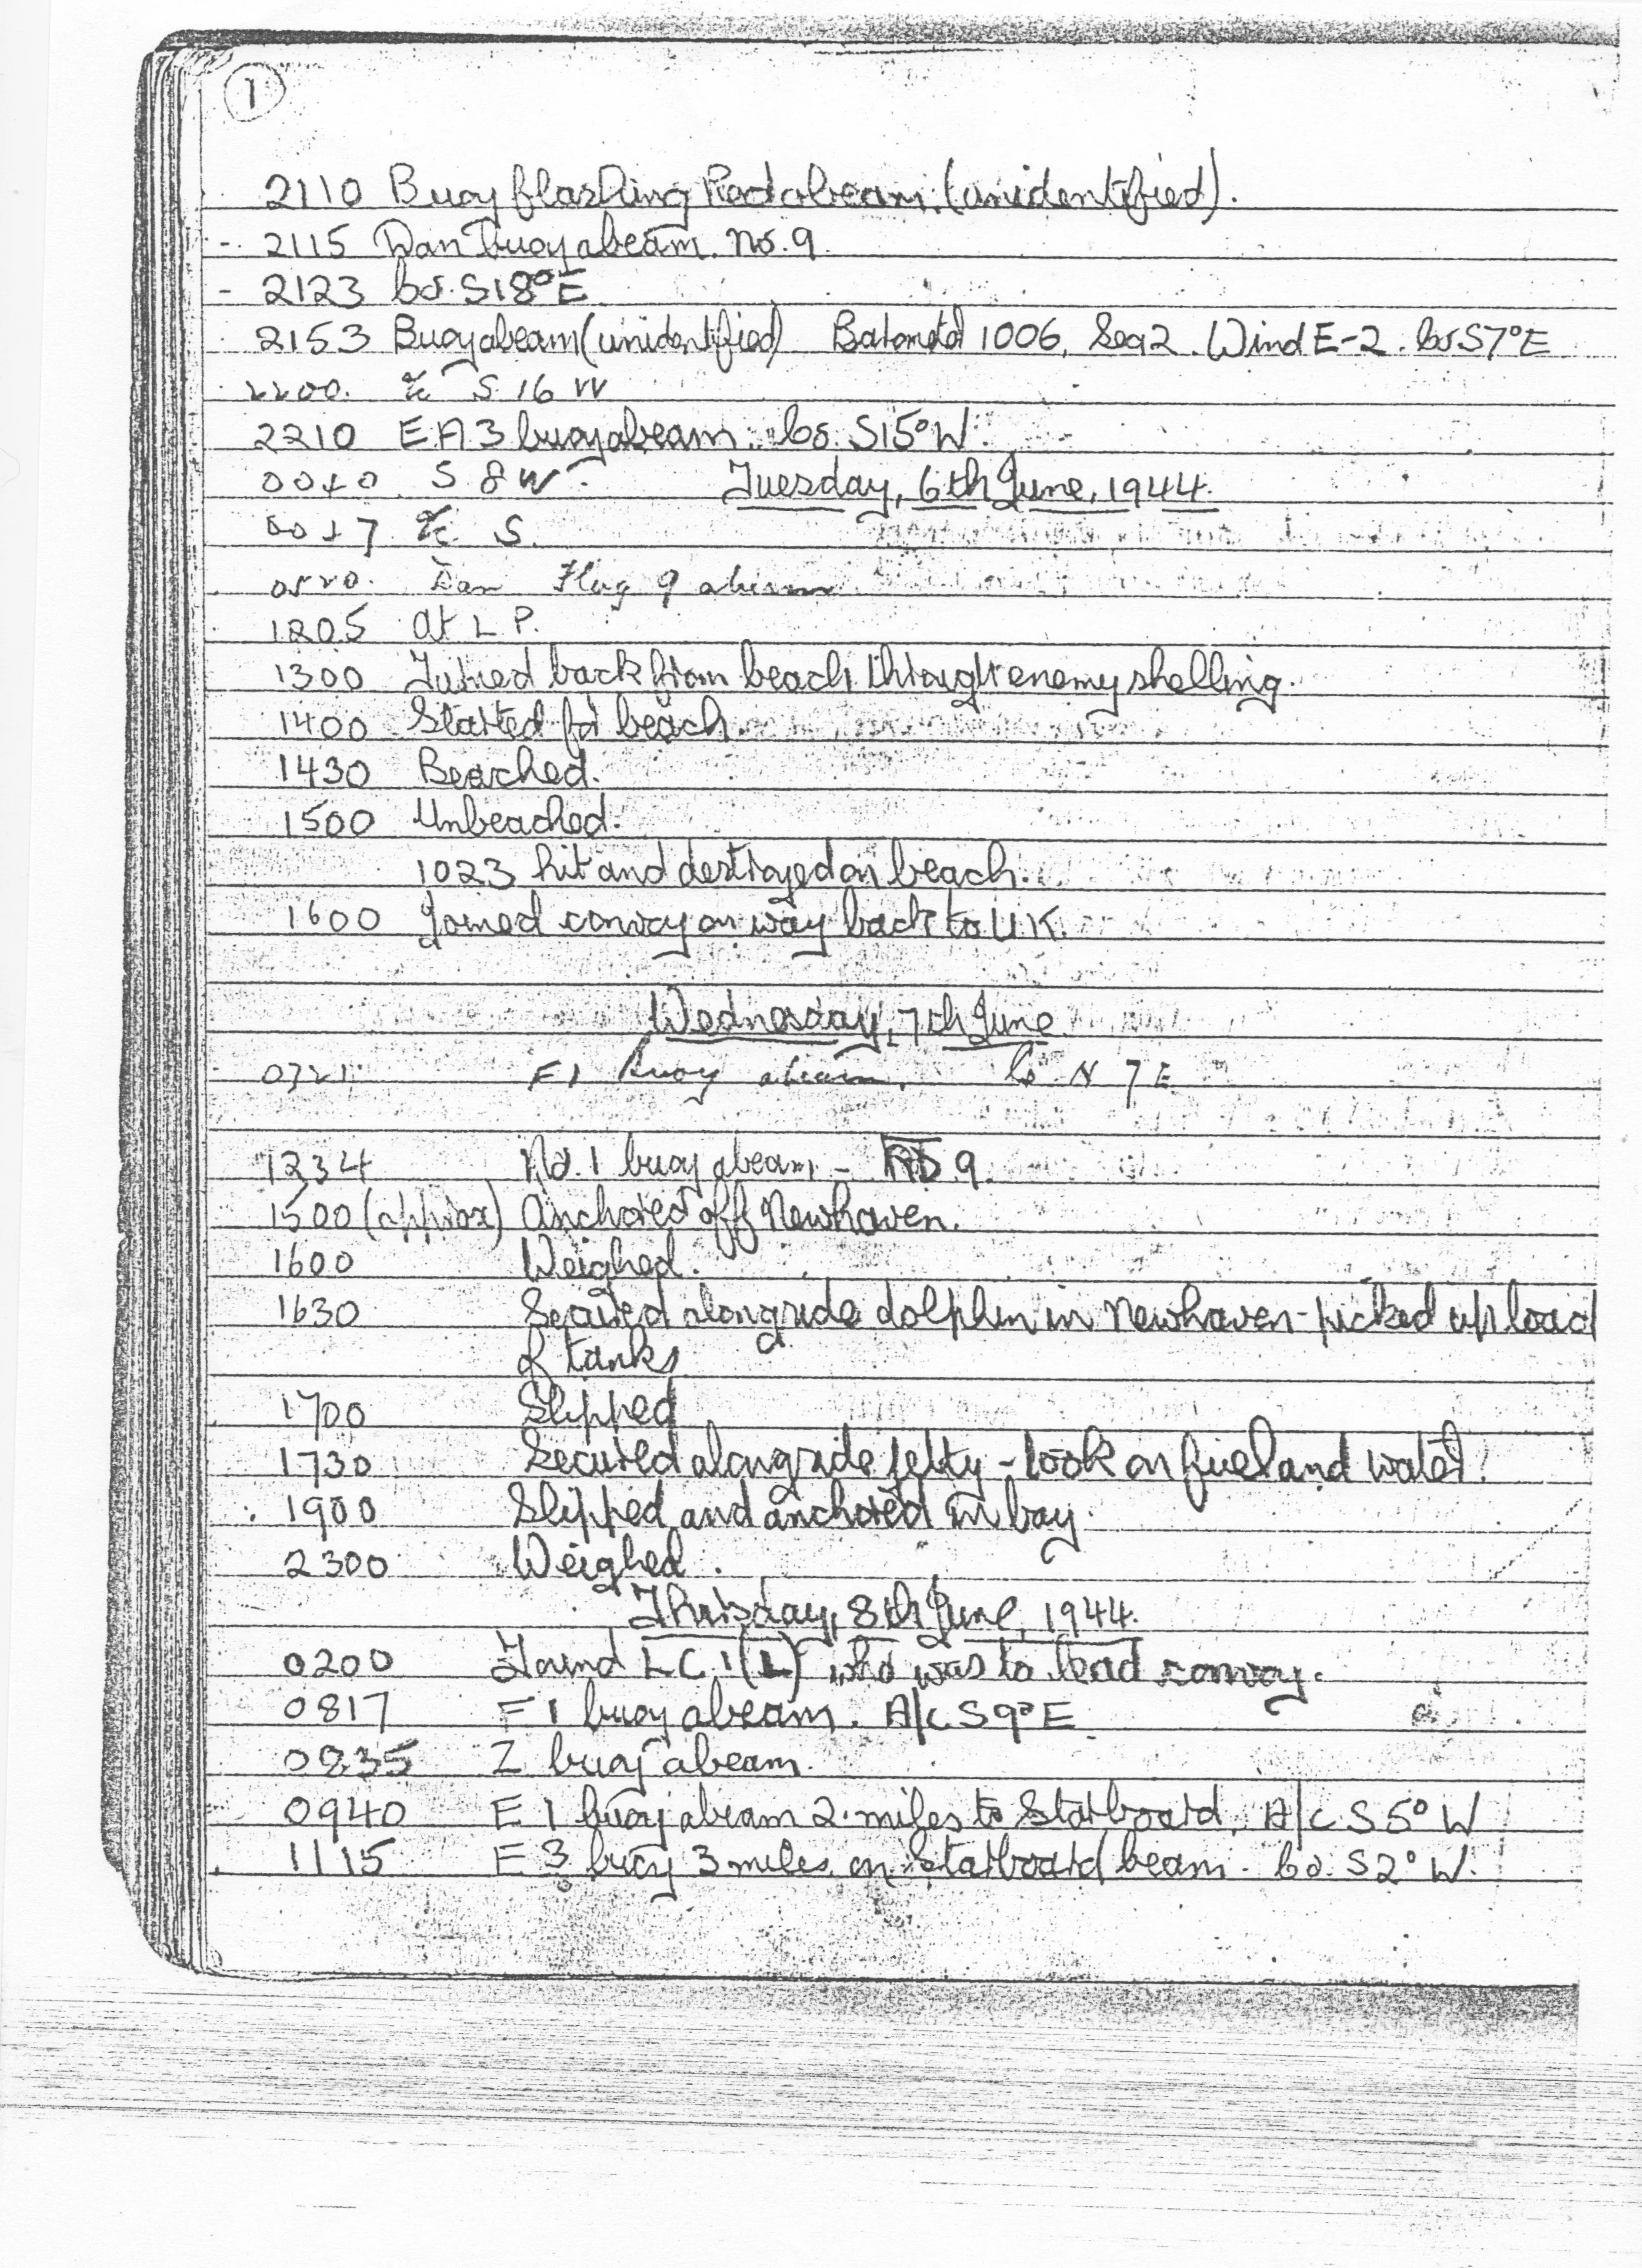 1
2110 Buoy flashing Red abeam. (unidentified).
- 2115 Dan buoy abeam. No. 9.
- 2123 Co. S18°E
2153 Buoy abeam (unidentified) Barometer 1006, Sea 2. Wind E-2. Co. S7°E
2200. a/c S. 16 W
2210 E A 3 buoy abeam. Co. S15°W.
S 8 W. Tuesday, 6th June, 1944.
a/c S.
0520. Dan Flag 9 abeam
1205 at L. P.
1300 Turned back from beach through enemy shelling.
1400 Started for beach
1430 Beached.
1500 Unbeached.
1023 hit and destroyed on beach.
1600 Joined convoy on way back to U.K.
Wednesday, 7th June
0721. F1 buoy abeam. Co N 7 E
1234 No. 1 buoy abeam - 9.
1500 (approx) Anchored off Newhaven.
1600 Weighed.
1630 Secured alongside dolphin in Newhaven - picked up load
of tanks
1700 Slipped
1730 Secured alongside jetty - took on fuel and water.
1900 Slipped and anchored in bay.
2300 Weighed.
Thursday, 8th June, 1944.
0200 Found L C I (L) who was to lead convoy.
0817 F1 buoy abeam. A/c S9°E
0835 Z buoy abeam.
0940 E 1 buoy abeam 2 miles to Starboard, A/c S5°W
1115 E 3 buoy 3 miles on Starboard beam. Co. S2°W.